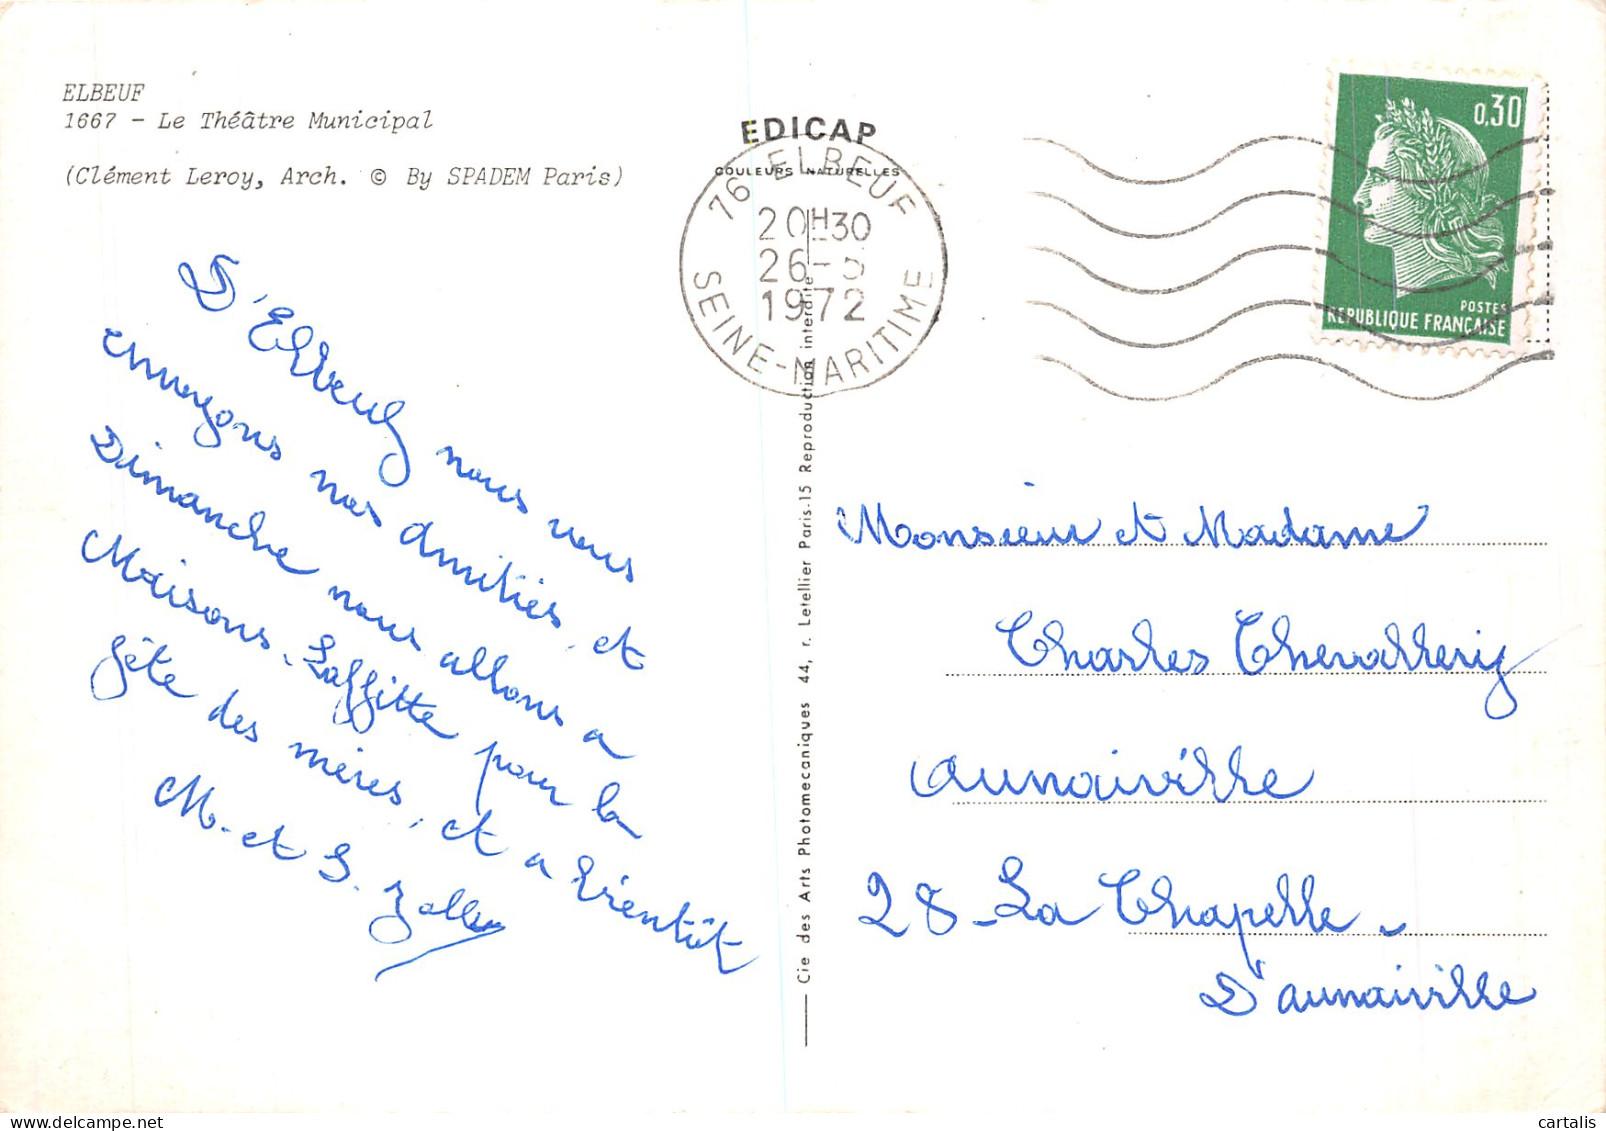 ELBEUF
1667 - Le Théâtre Municipal
(Clément Leroy, Arch. © By SPADEM Paris)
EDICAP
COULEURS NATURELLES
76 - ELBEUF
20H30
26-5
1972
SEINE-MARITIME
0,30
POSTES
REPUBLIQUE FRANÇAISE
D'Elbeuf nous vous
envoyons nos amitiés, et
Dimanche nous allons a
Maisons-Laffitte pour la
fête des mères, et a bientôt
M. et S.
Cie des Arts Photomecaniques 44, r. Letellier Paris-15 Reproduction interdite
Monsieur et Madame
Charles Chevallery
Aunaiville
28 - La Chapelle -
D'aunaiville
cartalis